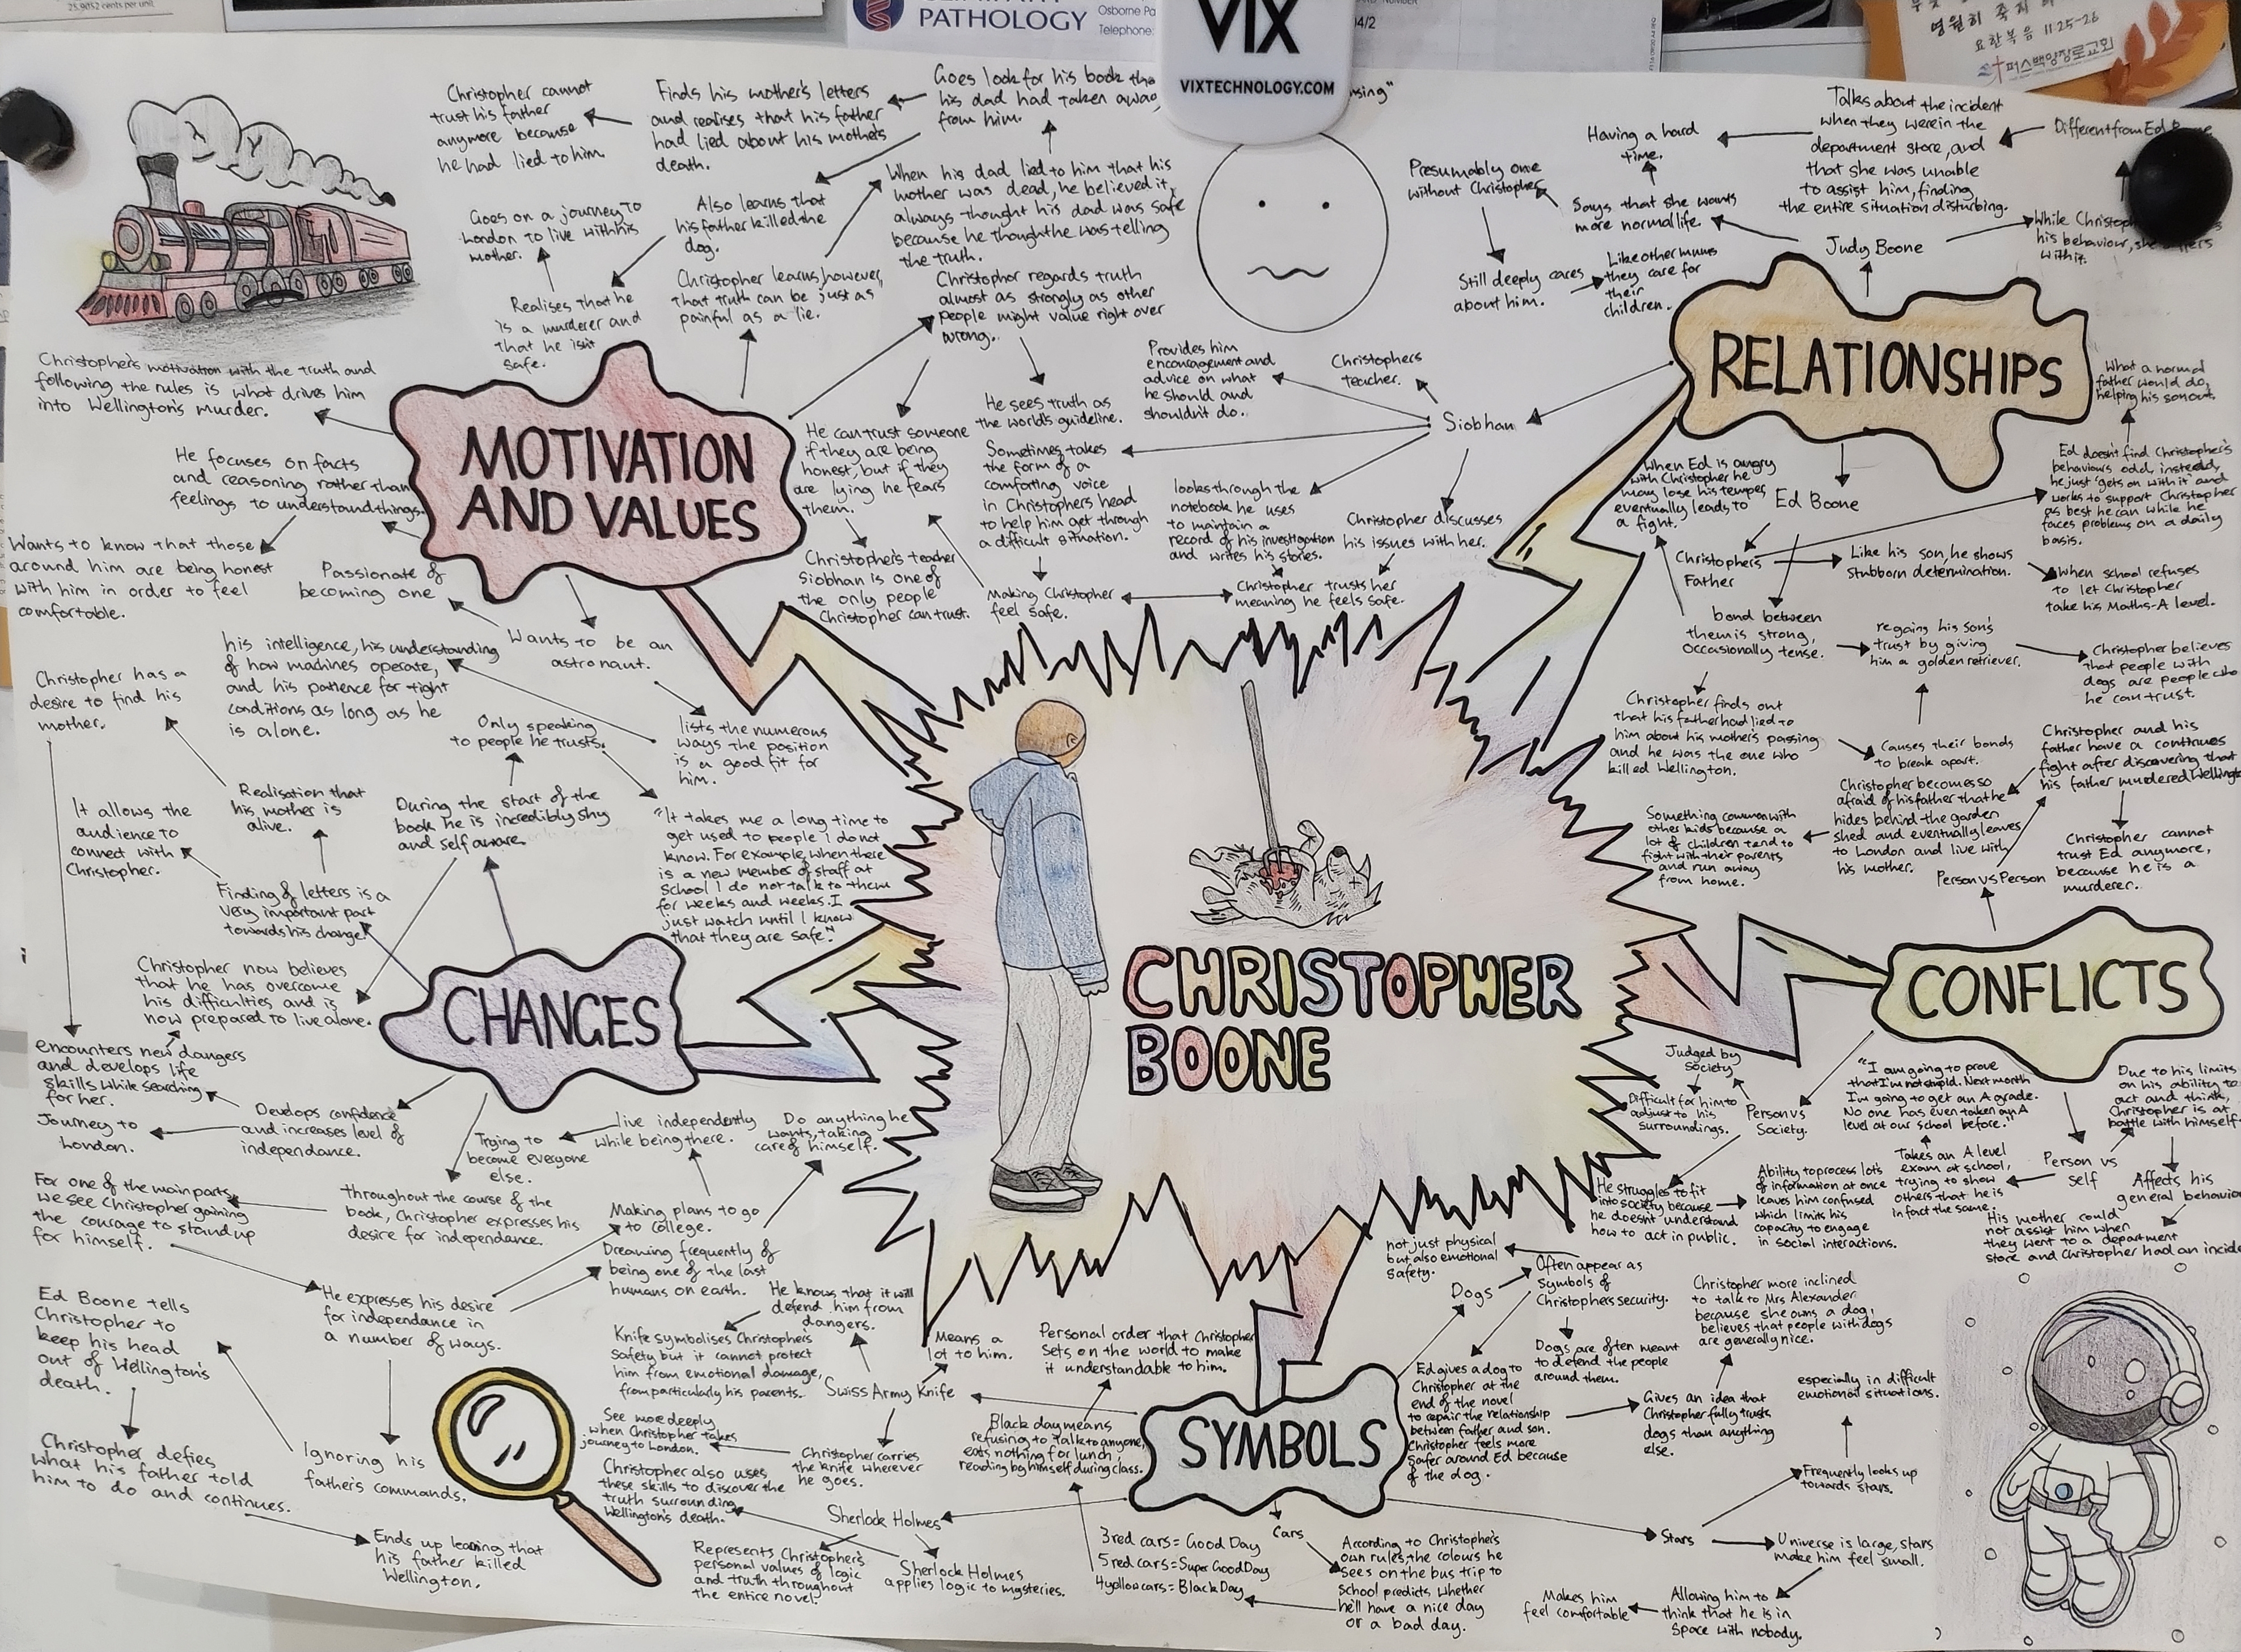 25.9052 cents per unit
PATHOLOGY
Osborne Pa
Telephone:
VIX
VIXTECHNOLOGY.COM
요한복음 11:25-26
퍼스백양장로교회
Christopher cannot
trust his father
anymore because
he had lied to him.
Finds his mother's letters
and realises that his father
had lied about his mothers
death.
Goes look for his book tha
his dad had taken away
from him.
Goes on a journey to
London to live with his
mother.
Also learns that
his father killed the
dog.
When his dad lied to him that his
mother was dead, he believed it,
always thought his dad was safe
because he thought he was telling
the truth.
Realises that he
is a murderer and
that he isnt
safe.
Christopher learns, however,
that truth can be just as
painful as a lie.
Christopher regards truth
almost as strongly as other
people might value right over
wrong.
Christopher's motivation with the truth and
following the rules is what drives him
into Wellington's murder.
MOTIVATION
AND VALUES
He focuses on facts
and reasoning rather than
feelings to understand things.
Wants to know that those
around him are being honest
with him in order to feel
comfortable.
Passionate of
becoming one
Wants to be an
astronaut.
his intelligence, his understanding
of how machines operate,
and his patience for tight
conditions as long as he
is alone.
lists the numerous
ways the position
is a good fit for
him.
He can trust someone
if they are being
honest, but if they
are lying he fears
them.
He sees truth as
the world's guideline.
Christopher's teacher
Siobhan is one of
the only people
Christopher can trust.
Making Christopher
feel safe.
Sometimes takes
the form of a
comforting voice
in Christophers head
to help him get through
a difficult situation.
Provides him
encouragement and
advice on what
he should and
shouldn't do.
Christophers
teacher.
Siobhan
looks through the
notebook he uses
to maintain a
record of his investigation
and writes his stories.
Christopher discusses
his issues with her.
Christopher trusts her
meaning he feels safe.
RELATIONSHIPS
Judy Boone
Talks about the incident
when they were in the
department store, and
that she was unable
to assist him, finding
the entire situation disturbing.
Different from Ed Boone,
While Christoph
his behaviour, she
with it.
Having a hard
time.
Says that she wants
more normal life.
Presumably one
without Christopher
Still deeply cares
about him.
Like other mums
they care for
their
children.
Ed Boone
When Ed is angry
with Christopher he
may lose his temper,
eventually leads to
a fight.
What a normal
father would do,
helping his son out.
Ed doesn't find Christopher's
behaviours odd, instead,
he just 'gets on with it' and
works to support Christopher
as best he can while he
faces problems on a daily
basis.
Christophers
Father
Like his son, he shows
stubborn determination.
When school refuses
to let Christopher
take his Maths-A level.
bond between
them is strong,
occasionally tense.
regains his son's
trust by giving
him a golden retriever.
Christopher believes
that people with
dogs are people who
he can trust.
Christopher finds out
that his father had lied to
him about his mother's passing
and he was the one who
killed Wellington.
Causes their bonds
to break apart.
CONFLICTS
Person vs Person
Christopher and his
father have a continues
fight after discovering that
his father murdered Wellingt
Christopher becomes so
afraid of his father that he
hides behind the garden
shed and eventually leaves
to London and live with
his mother.
Something common with
other kids because a
lot of children tend to
fight with their parents
and run away
from home.
Christopher cannot
trust Ed anymore,
because he is a
murderer.
Person vs
Society.
Judged by
society
Difficult for him to
adjust to his
surroundings.
He struggles to fit
into society because
he doesn't understand
how to act in public.
Ability to process lots
of information at once
leaves him confused
which limits his
capacity to engage
in social interactions.
Person vs
self
"I am going to prove
that I'm not stupid. Next month
I'm going to get an A grade.
No one has even taken an A
level at our school before."
Takes an A level
exam at school,
trying to show
others that he is
in fact the same.
Due to his limits
on his ability to
act and think,
Christopher is at
battle with himself.
Affects his
general behaviou
His mother could
not assist him when
they went to a department
store and Christopher had an incide
CHRISTOPHER
BOONE
CHANGES
During the start of the
book he is incredibly shy
and self aware.
Only speaking
to people he trusts.
"It takes me a long time to
get used to people I do not
know. For example, when there
is a new member of staff at
school I do not talk to them
for weeks and weeks. I
just watch until I know
that they are safe."
Christopher has a
desire to find his
mother.
Realisation that
his mother is
alive.
It allows the
audience to
connect with
Christopher.
Finding of letters is a
very important part
towards his change.
Christopher now believes
that he has overcome
his difficulties and is
now prepared to live alone.
encounters new dangers
and develops life
skills while searching
for her.
Develops confidence
and increases level of
independance.
Journey to
London.
throughout the course of the
book, Christopher expresses his
desire for independance.
For one of the main parts,
we see Christopher gaining
the courage to stand up
for himself.
He expresses his desire
for independance in
a number of ways.
Making plans to go
to college.
live independently
while being there.
Trying to
become everyone
else.
Do anything he
wants, taking
care of himself.
Dreaming frequently of
being one of the last
humans on earth.
Ignoring his
father's commands.
Ed Boone tells
Christopher to
keep his head
out of Wellington's
death.
Christopher defies
what his father told
him to do and continues.
Ends up learning that
his father killed
Wellington.
SYMBOLS
Swiss Army Knife
He knows that it will
defend him from
dangers.
Means a
lot to him.
Knife symbolises Christophers
safety but it cannot protect
him from emotional damage,
from particularly his parents.
Christopher carries
the knife wherever
he goes.
See more deeply
when Christopher takes
journey to London.
Sherlock Holmes
Christopher also uses
these skills to discover the
truth surrounding
Wellington's death.
Represents Christopher's
personal values of logic
and truth throughout
the entire novel.
Sherlock Holmes
applies logic to mysteries.
Cars
According to Christopher's
own rules, the colours he
sees on the bus trip to
school predicts whether
he'll have a nice day
or a bad day.
3 red cars = Good Day
5 red cars = Super Good Day
4 yellow cars = Black Day
Black day means
refusing to talk to anyone,
eats nothing for lunch,
reading by himself during class.
Personal order that Christopher
sets on the world to make
it understandable to him.
Dogs
Often appear as
symbols of
Christophers security.
not just physical
but also emotional
safety.
Dogs are often meant
to defend the people
around them.
Ed gives a dog to
Christopher at the
end of the novel
to repair the relationship
between father and son.
Christopher feels more
safer around Ed because
of the dog.
Gives an idea that
Christopher fully trusts
dogs than anything
else.
Christopher more inclined
to talk to Mrs Alexander
because she owns a dog,
believes that people with dogs
are generally nice.
Stars
Frequently looks up
towards stars.
especially in difficult
emotional situations.
Universe is large, stars
make him feel small.
Allowing him to
think that he is in
space with nobody.
Makes him
feel comfortable